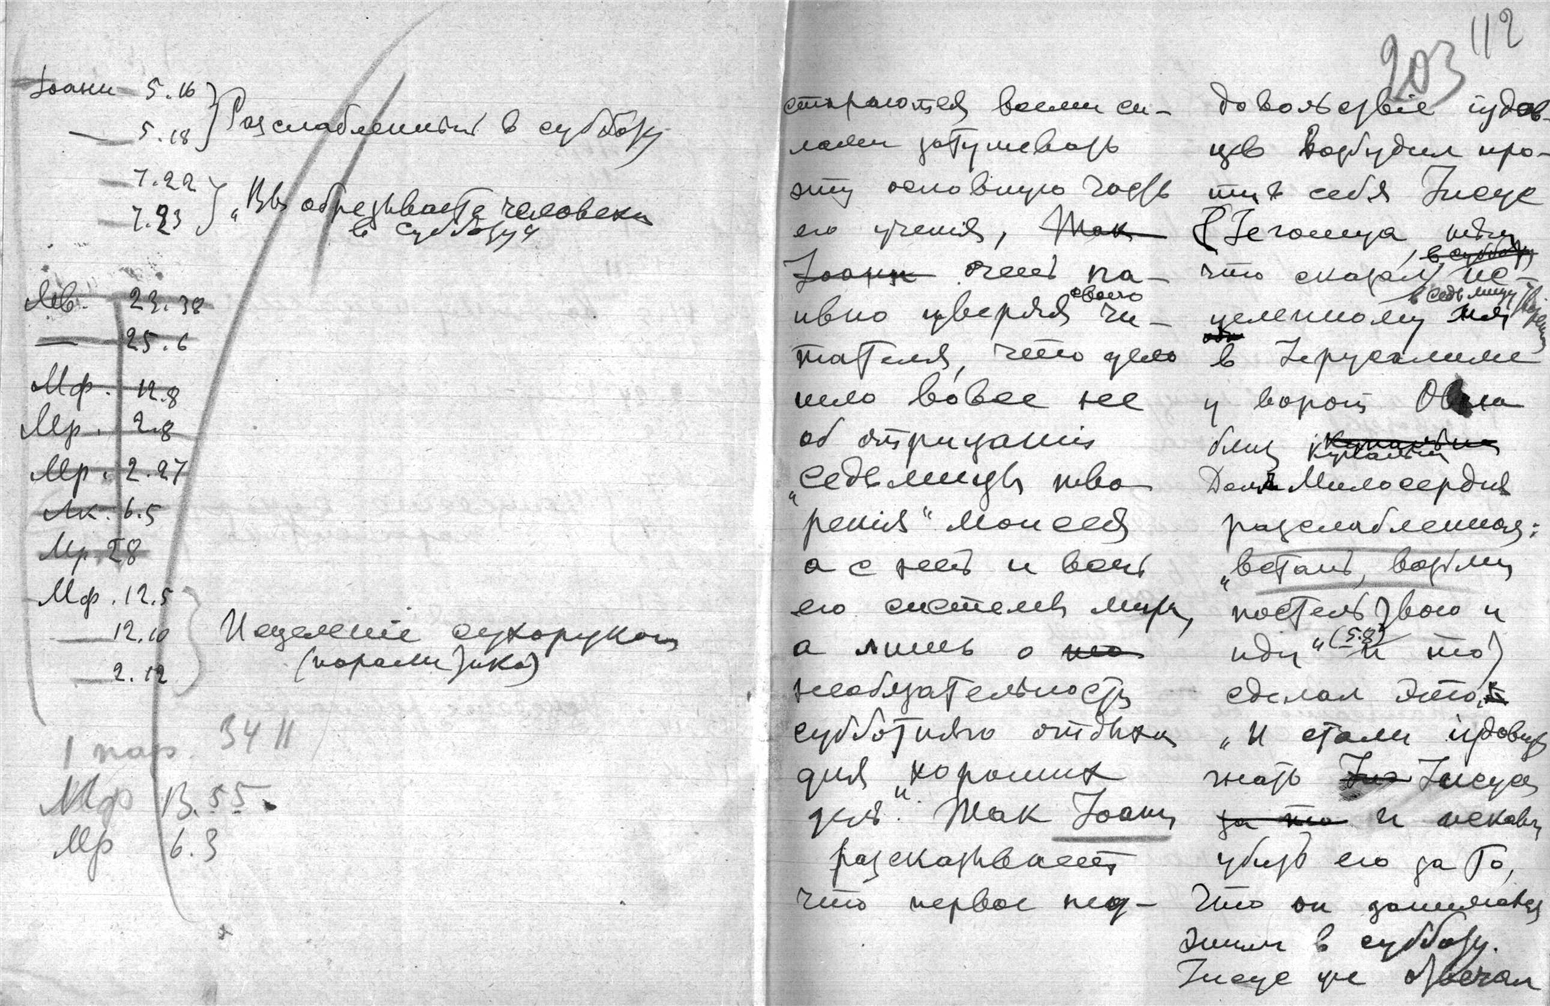 Іоанн 5.16
— 5.18
Расслабленный в субботу
— 7.22
— 7.23
„Вы обрезываете человека
в субботу“
Лев. 23.38
— 25.6
Мф. 12.8
Мр. 2.8
Мр. 2.27
Лк. 6.5
Мр. 28
Мф. 12.5
— 12.10
— 2.12
Исцеленіе сухорукого
(паралитика)
34 11
Мф 13.55.
Мр 6.3
стараются всеми си-
лами затушевать
эту основную часть
его ученія, Так
Іоанн очень на-
ивно уверяя своего чи-
тателя, что дело
шло вовсе не
об отрицаніи
„седьмицы тво-
„ренія“ Моисея
а с ней и всей
его системы мира,
а лишь о
необязательности
субботняго отдыха
для „хороших
дел“. Так Іоанн
разсказывает
что первое неу-
203 112
довольствіе іудов-
цев возбудил про-
тив себя Іисус
что сказал в субботу ис-
целенному
в Іерусалиме
у ворот Овна
близ купальни
Дом Милосердия
разслабленная:
„встань, возьми
постель твою и
иди“ (5.8) и то)
сделал это.
„И стали іудовцы
гнать Іисуса
за то и искали
убить его за то,
что он занимался
этим в субботу.
Іисус же отвечал